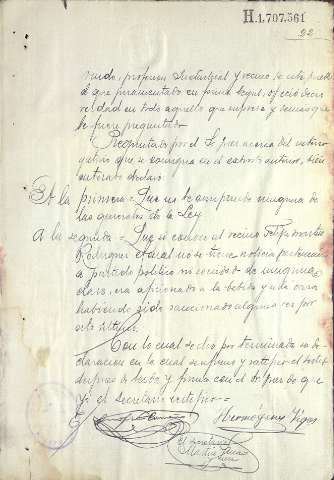 H.1.707.361
22
viudo, profesion industrial y vecino de esta
que juramentado en forma legal, ofreció decir
verdad en todo aquello que supiera y demas que
le fuere preguntado
Preguntado por el Sr. Juez acerca del
que se consigna en el exhorto anterior, bien
enterado declara:
A la primera = Que no le comprende ninguna de
las generales de la Ley
A la segunda = Que si conoce al vecino Felipe
Rodriguez el cual no se tiene noticia perteneciera
a partido politico ni sociedad de ninguna
clase, era aficionado a la bebida y a la
habiendo sido sancionado alguna vez por
esto ultimo.
Con lo cual se dió por terminada su de-
claracion en la cual se afirma y ratifica el
despues de leida y firma con el Sr. Juez de que
yo el Secretario certifico =
Hermogenes Vigas
El Secretario
Martin